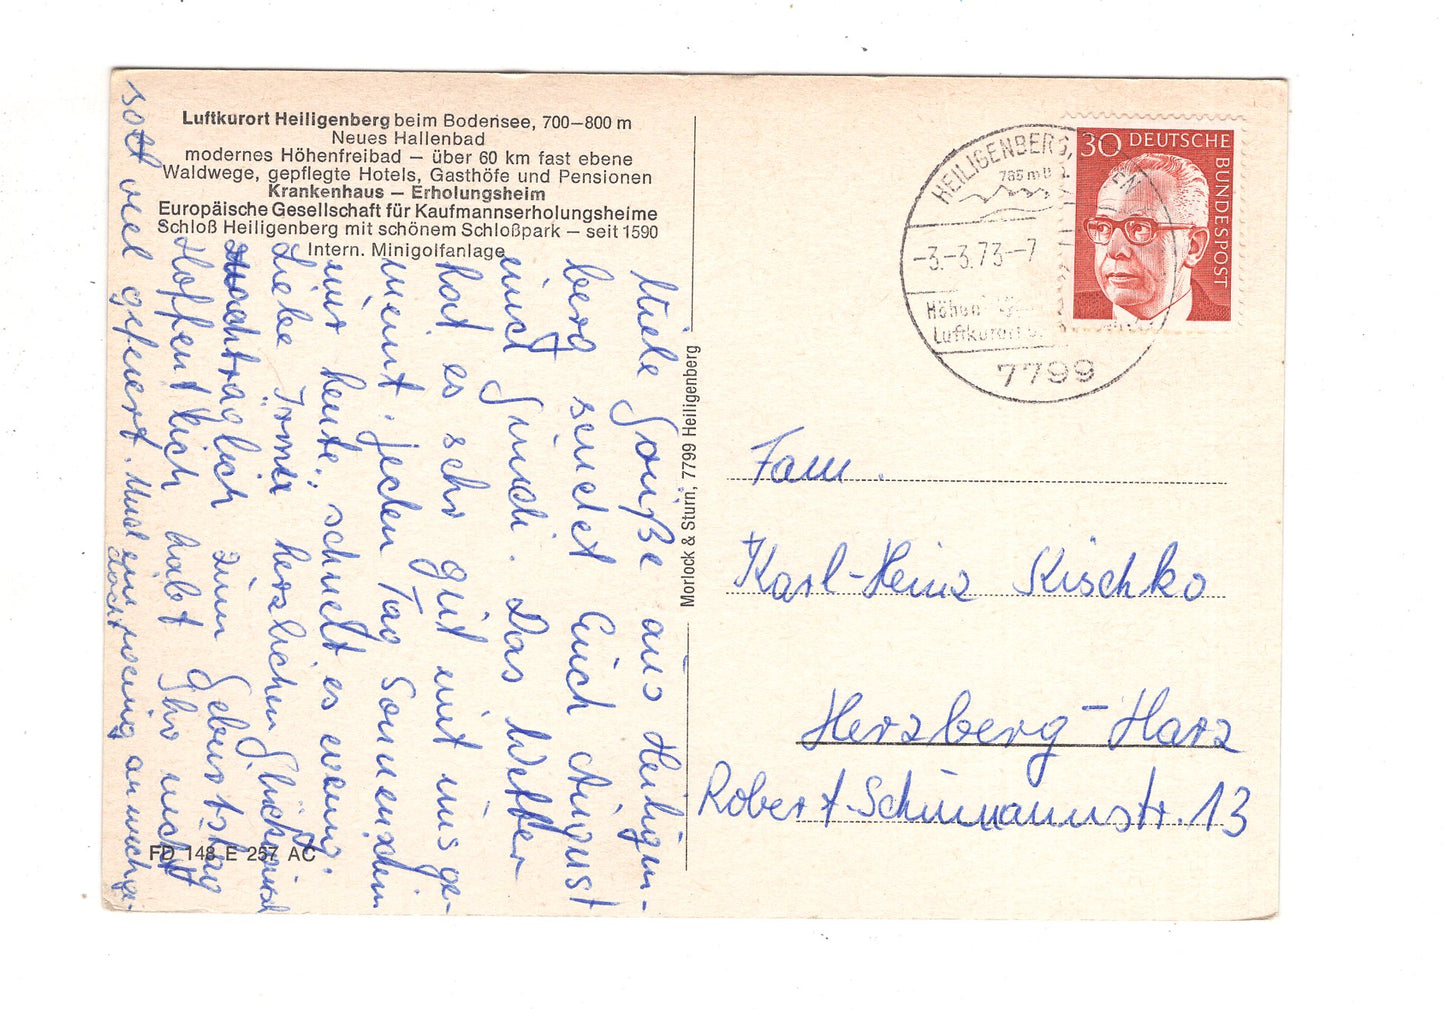 Luftkurort Heiligenberg beim Bodensee, 700–800 m
Neues Hallenbad
modernes Höhenfreibad – über 60 km fast ebene
Waldwege, gepflegte Hotels, Gasthöfe und Pensionen
Krankenhaus – Erholungsheim
Europäische Gesellschaft für Kaufmannserholungsheime
Schloß Heiligenberg mit schönem Schloßpark – seit 1590
Intern. Minigolfanlage
Viele Grüße aus Heiligen-
berg sendet Euch August
und Gindi. Das Wetter
hat es sehr gut mit uns ge-
meint. jeden Tag Sonnenschein
nur heute, schneit es wenig.
Liebe Irma herzlichen Glückwunsch
nachträglich zum Geburtstag
Hoffentlich habt Ihr nicht
so viel gefeiert. Und ein wenig an mich ge-
dacht
FD 148 E 257 AC
Morlock & Sturn, 7799 Heiligenberg
HEILIGENBERG,
-3.-3.73.-7
Luftkurort
7799
30 DEUTSCHE
BUNDESPOST
Fam.
Karl-Heinz Kischko
Herzberg-Harz
Robert-Schumannstr. 13